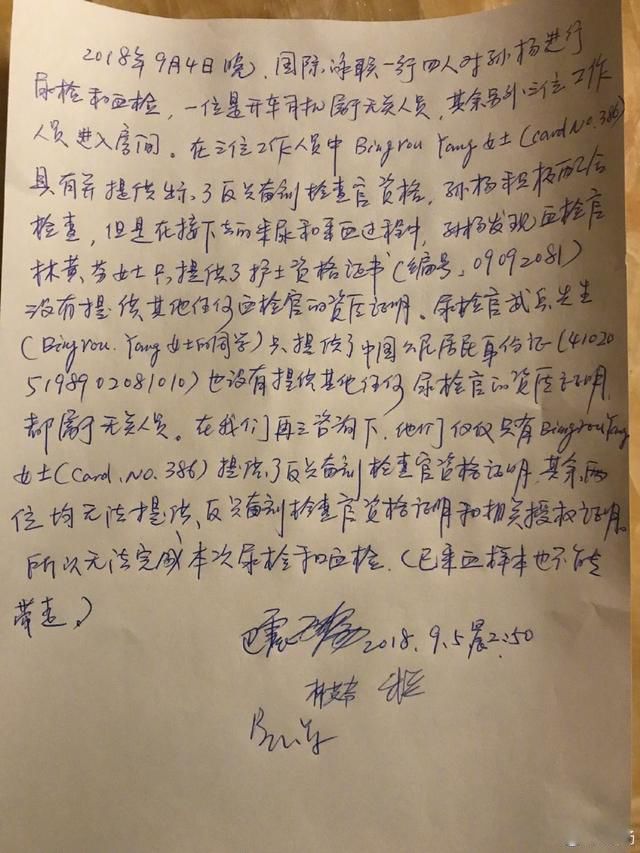 2018年9月4日晚，国际泳联一行四人对孙杨进行
尿检和血检，一位是开车司机属于无关人员，其余另外三位工作
人员进入房间。在三位工作人员中Bingrou Yang女士(card No.386)
具有并提供出示了反兴奋剂检查官资格，孙杨积极配合
检查，但是在接下去的采尿和采血过程中，孙杨发现血检官
林黄芬女士只提供了护士资格证书(编号:09092081)
没有提供其他任何血检官的资质证明。尿检官武兵先生
(Bingrou.Yang女士的同学)只提供了中国公民居民身份证(41020
5198902081010)也没有提供其他任何尿检官的资质证明，
都属于无关人员。在我们再三咨询下，他们仅仅只有Bingrou Yang
女士(Card.No.386)提供了反兴奋剂检查官资格证明，其余两
位均无法提供反兴奋剂检查官资格证明和相关授权证明。
所以无法完成本次尿检和血检.(已采血样本也不能
带走。)
2018.9.5晨2:50